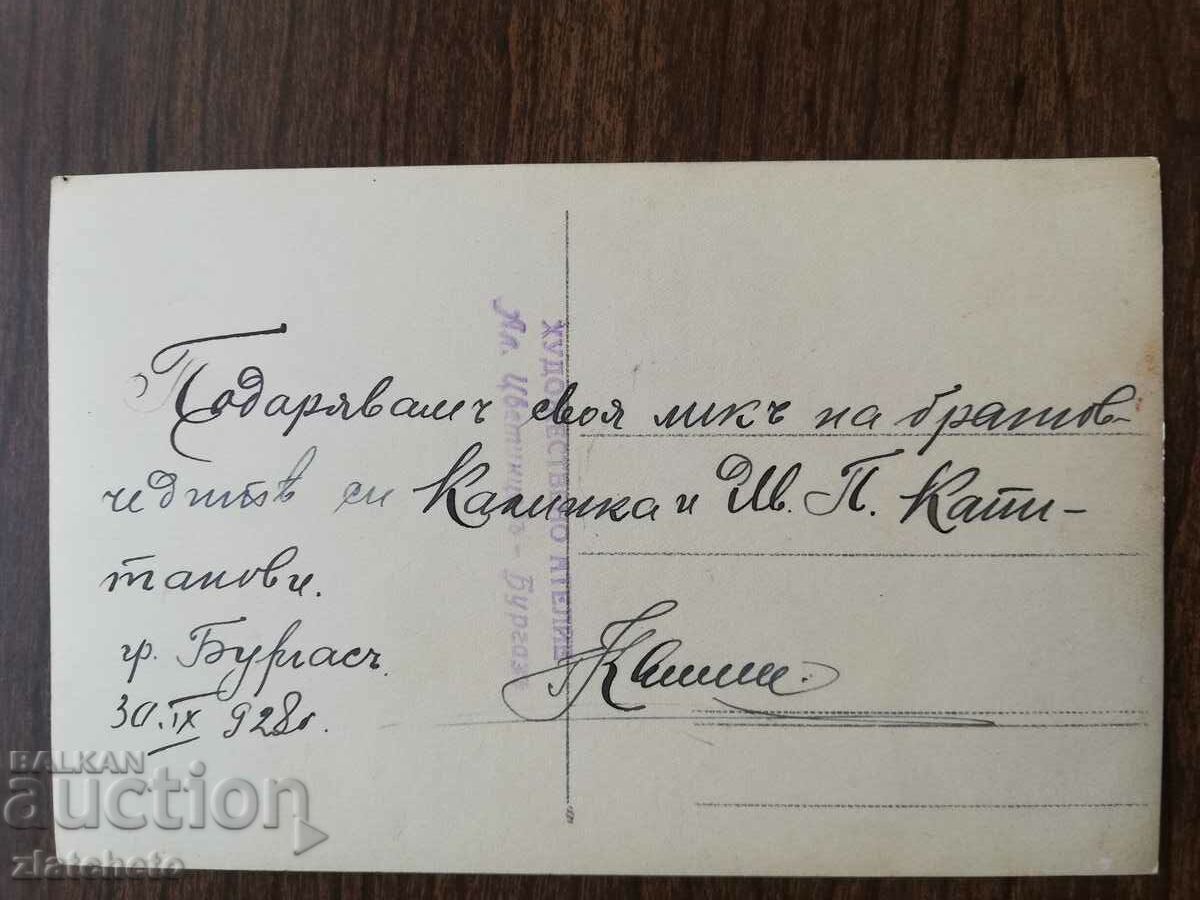 Подарявамъ своя ликъ на братов-
чедитѣ си Калинка и Ив. П. Капи-
танови.
гр. Бургасъ
30.IX 928г.
ХУДОЖЕСТВЕНО АТЕЛИЕ
Ал. Цвѣтиновъ - Бургазъ
BALKAN
auction
zlatcheto